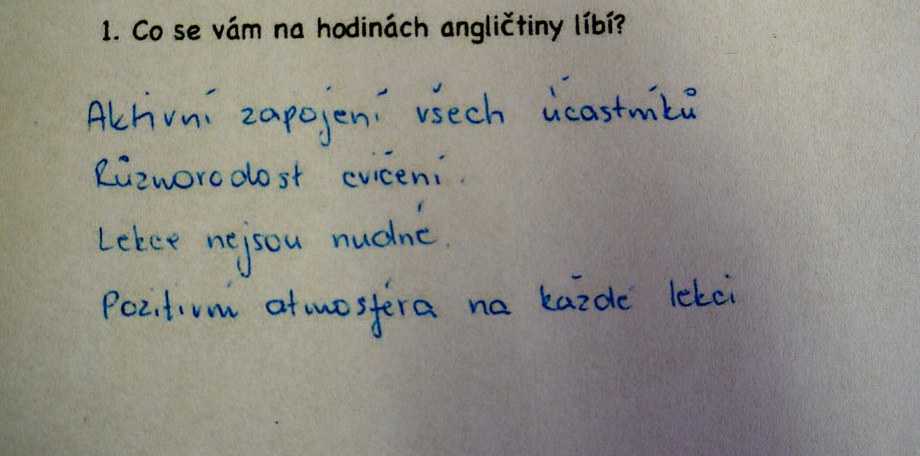 1. Co se vám na hodinách angličtiny líbí?
Aktivní zapojení všech účastníků
Různorodost cvičení.
Lekce nejsou nudné.
Pozitivní atmosféra na každé lekci